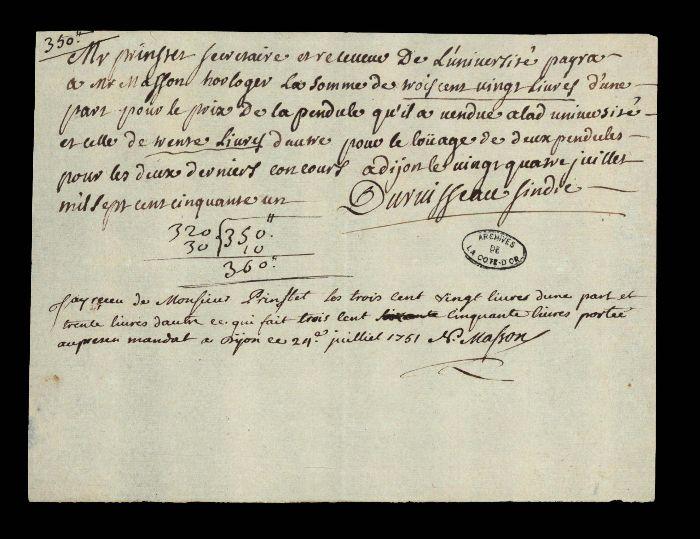 350ᵗᵗ
Mr prinstet secretaire et receveur De L'université payra
a Mr Masson horloger La somme de trois cent vingt Livres d'une
part pour le prix De La pendule qu'il a vendue a lad université
et celle de trente Livres d'autre pour le loüage de deux pendules
pour les deux derniers concours a dijon le vingt quatre juillet
mil sept cent cinquante un
Duruisseau sindic
320 350ᵗᵗ
30 10
360ᵗᵗ
ARCHIVES
DE
LA COTE-D'OR
J'ay reçeu de Monsieur Prinstet les trois cent vingt livres dune part et
trente livres dautre ce qui fait trois cent cinquante livres portée
au presen mandat a Dijon ce 24e juilliet 1751 N. Masson